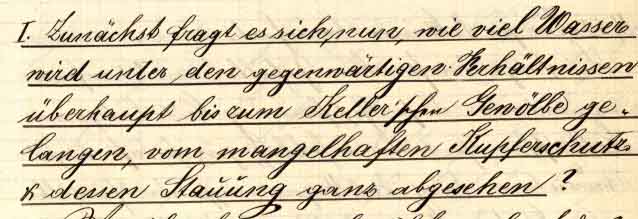 I. Zunächst fragt es sich, nun, wie viel Wasser
wird unter den gegenwärtigen Verhältnissen
überhaupt bis zum Keller'schen Gewölbe ge-
langen, vom mangelhaften Kupferschutz
& dessen Stauung ganz abgesehen?